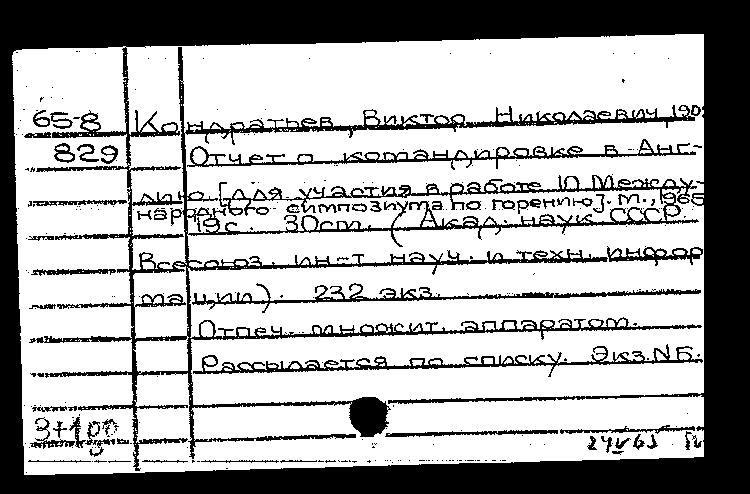 65-8 Кондратьев, Виктор Николаевич, 190
829 Отчет о командировке в Анг-
лию [для участия в работе 10 Между-
народного симпозиума по горению]. М., 1965
19с. 30см. (Акад. наук СССР.
Всесоюз. ин-т науч. и техн. инфор
мации). 232 экз.
Отпеч. множит. аппаратом.
Рассылается по списку. Экз. № Б.
3+1